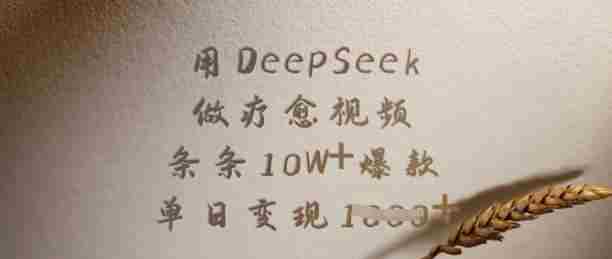 用DeepSeek
做疗愈视频
条条10W+爆款
单日变现